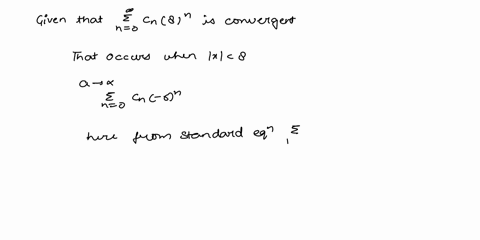 Given that ∞Σn=0 Cn(8)^n is convergent
That occurs when |x| < 8
a → ∝
Σn=0 Cn(-6)^n
here from standard eqn Σ